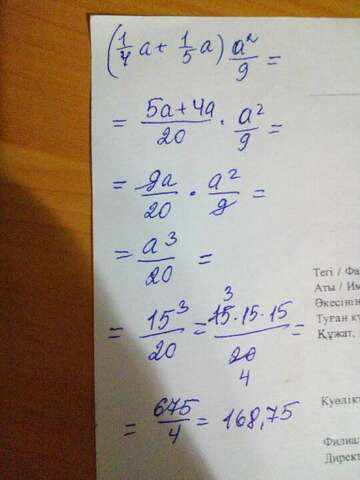 (1/4 a + 1/5 a) a²/9 =
= 5a+4a/20 · a²/9 =
= 9a/20 · a²/9 =
= a³/20 =
= 15³/20 = 3 15·15·15/20 4 =
= 675/4 = 168,75
Тегі / Фа
Аты / Им
Әкесінің
Туған кү
Құжат,
Куәлікт
Филиал
Дирек